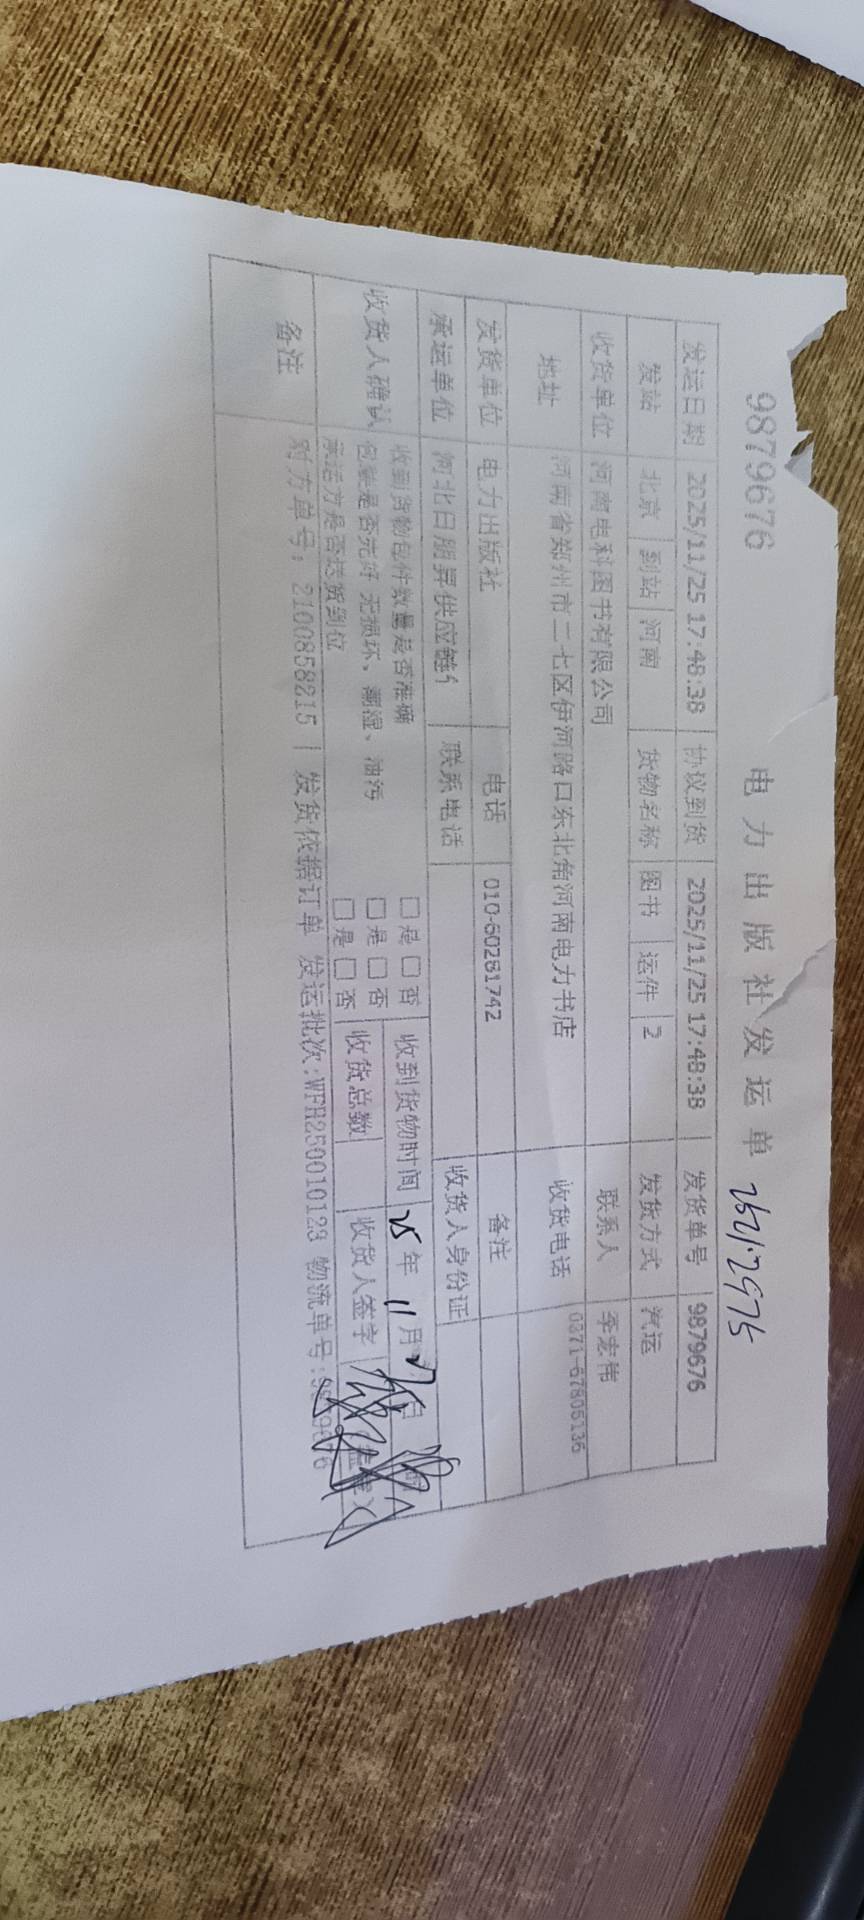 9879676 电力出版社发运单
发运日期 2025/11/25 17:48:38 协议到货 2025/11/25 17:48:38 发货单号 9879676
发站 北京 到站 河南 货物名称 图书 运件 2 发货方式 汽运
收货单位 河南电科图书有限公司 联系人 李宏伟
地址 河南省郑州市二七区伊河路口东北角河南电力书店 收货电话 0371-67805136
发货单位 电力出版社 电话 010-60281742 备注
承运单位 河北日朋昇供应链 联系电话 收货人身份证
收货人确认 收到货物包件数量是否准确 □是□否 收到货物时间 25年 11月 日
包装是否完好 无损坏、潮湿、油污 □是□否 收货总数 收货人签字
承运方是否送货到位 □是□否
备注 对方单号：2100858215 | 发货依据订单 发运批次:WFH250010123 物流单号:9879676